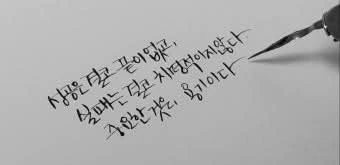 성공은 결코 끝이 없고,
실패는 결코 치명적이지 않다
중요한 것은 용기이다